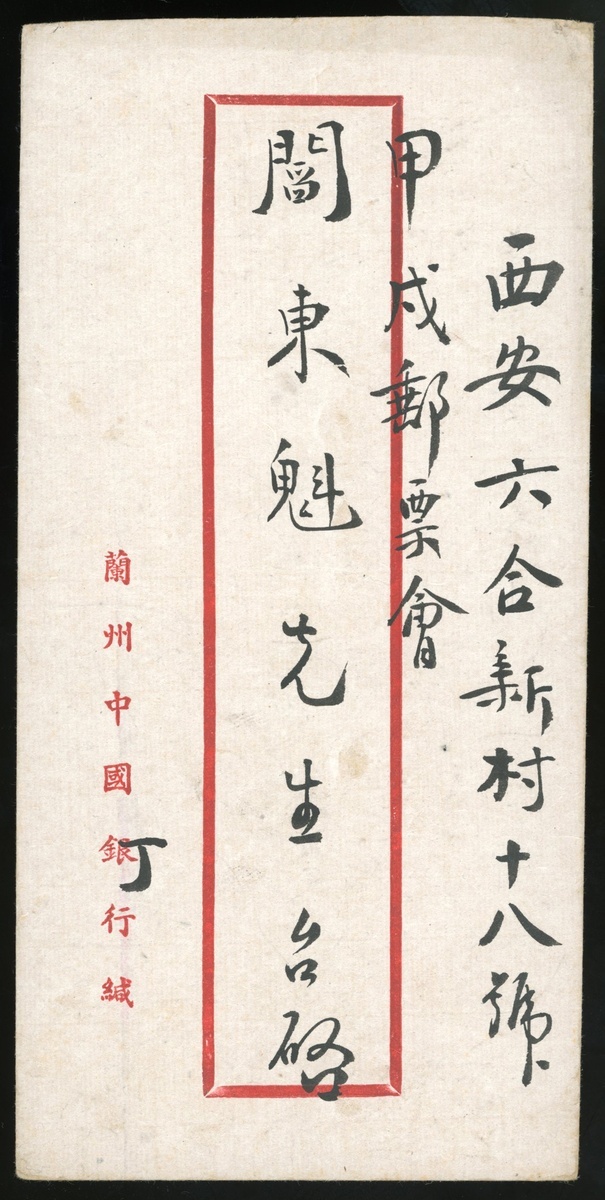 西安六合新村十八號
甲戍郵票會
閻東魁先生台啓
蘭州中國銀行緘
丁